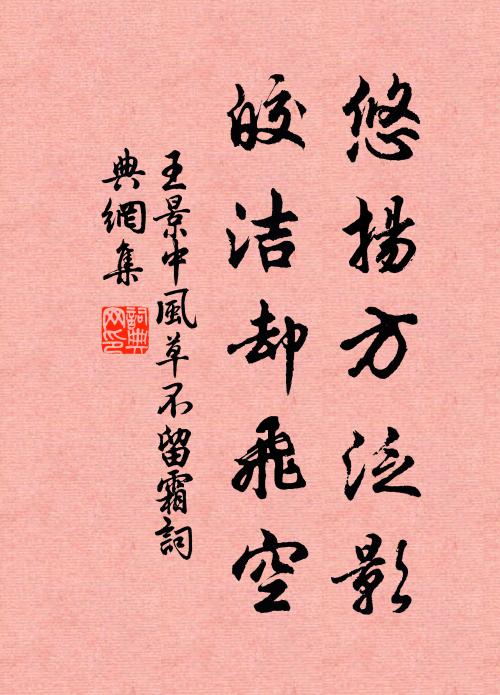 悠揚方泛影
皎洁却飛空
王景中風草不留霜詞
典網集
詞典網印